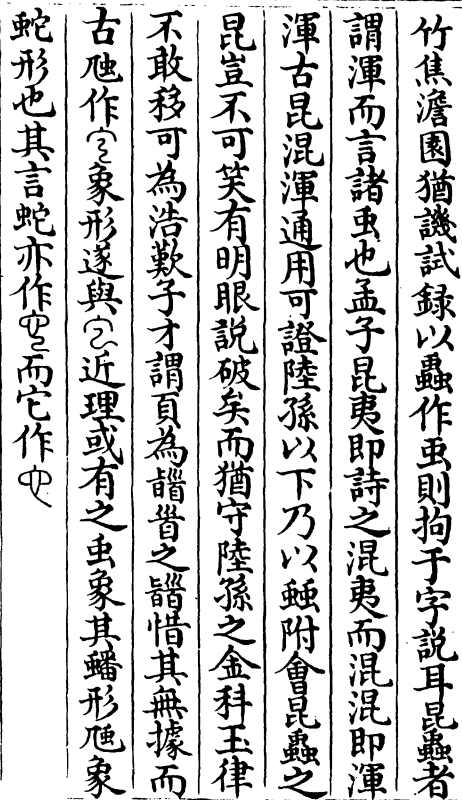 竹焦澹園猶譏試録以蟲作虫則拘于字說耳昆蟲者
謂渾而言諸虫也孟子昆夷即詩之混夷而混混即渾
渾古昆混渾通用可證陸孫以下乃以䖵附會昆蟲之
昆豈不可笑有明眼說破矣而猶守陸孫之金科玉律
不敢移可為浩歎子才謂頁為𩠐𩠐之𩠐惜其無據而
古虺作象形遂與近理或有之虫象其蟠形虺象
蛇形也其言蛇亦作而它作